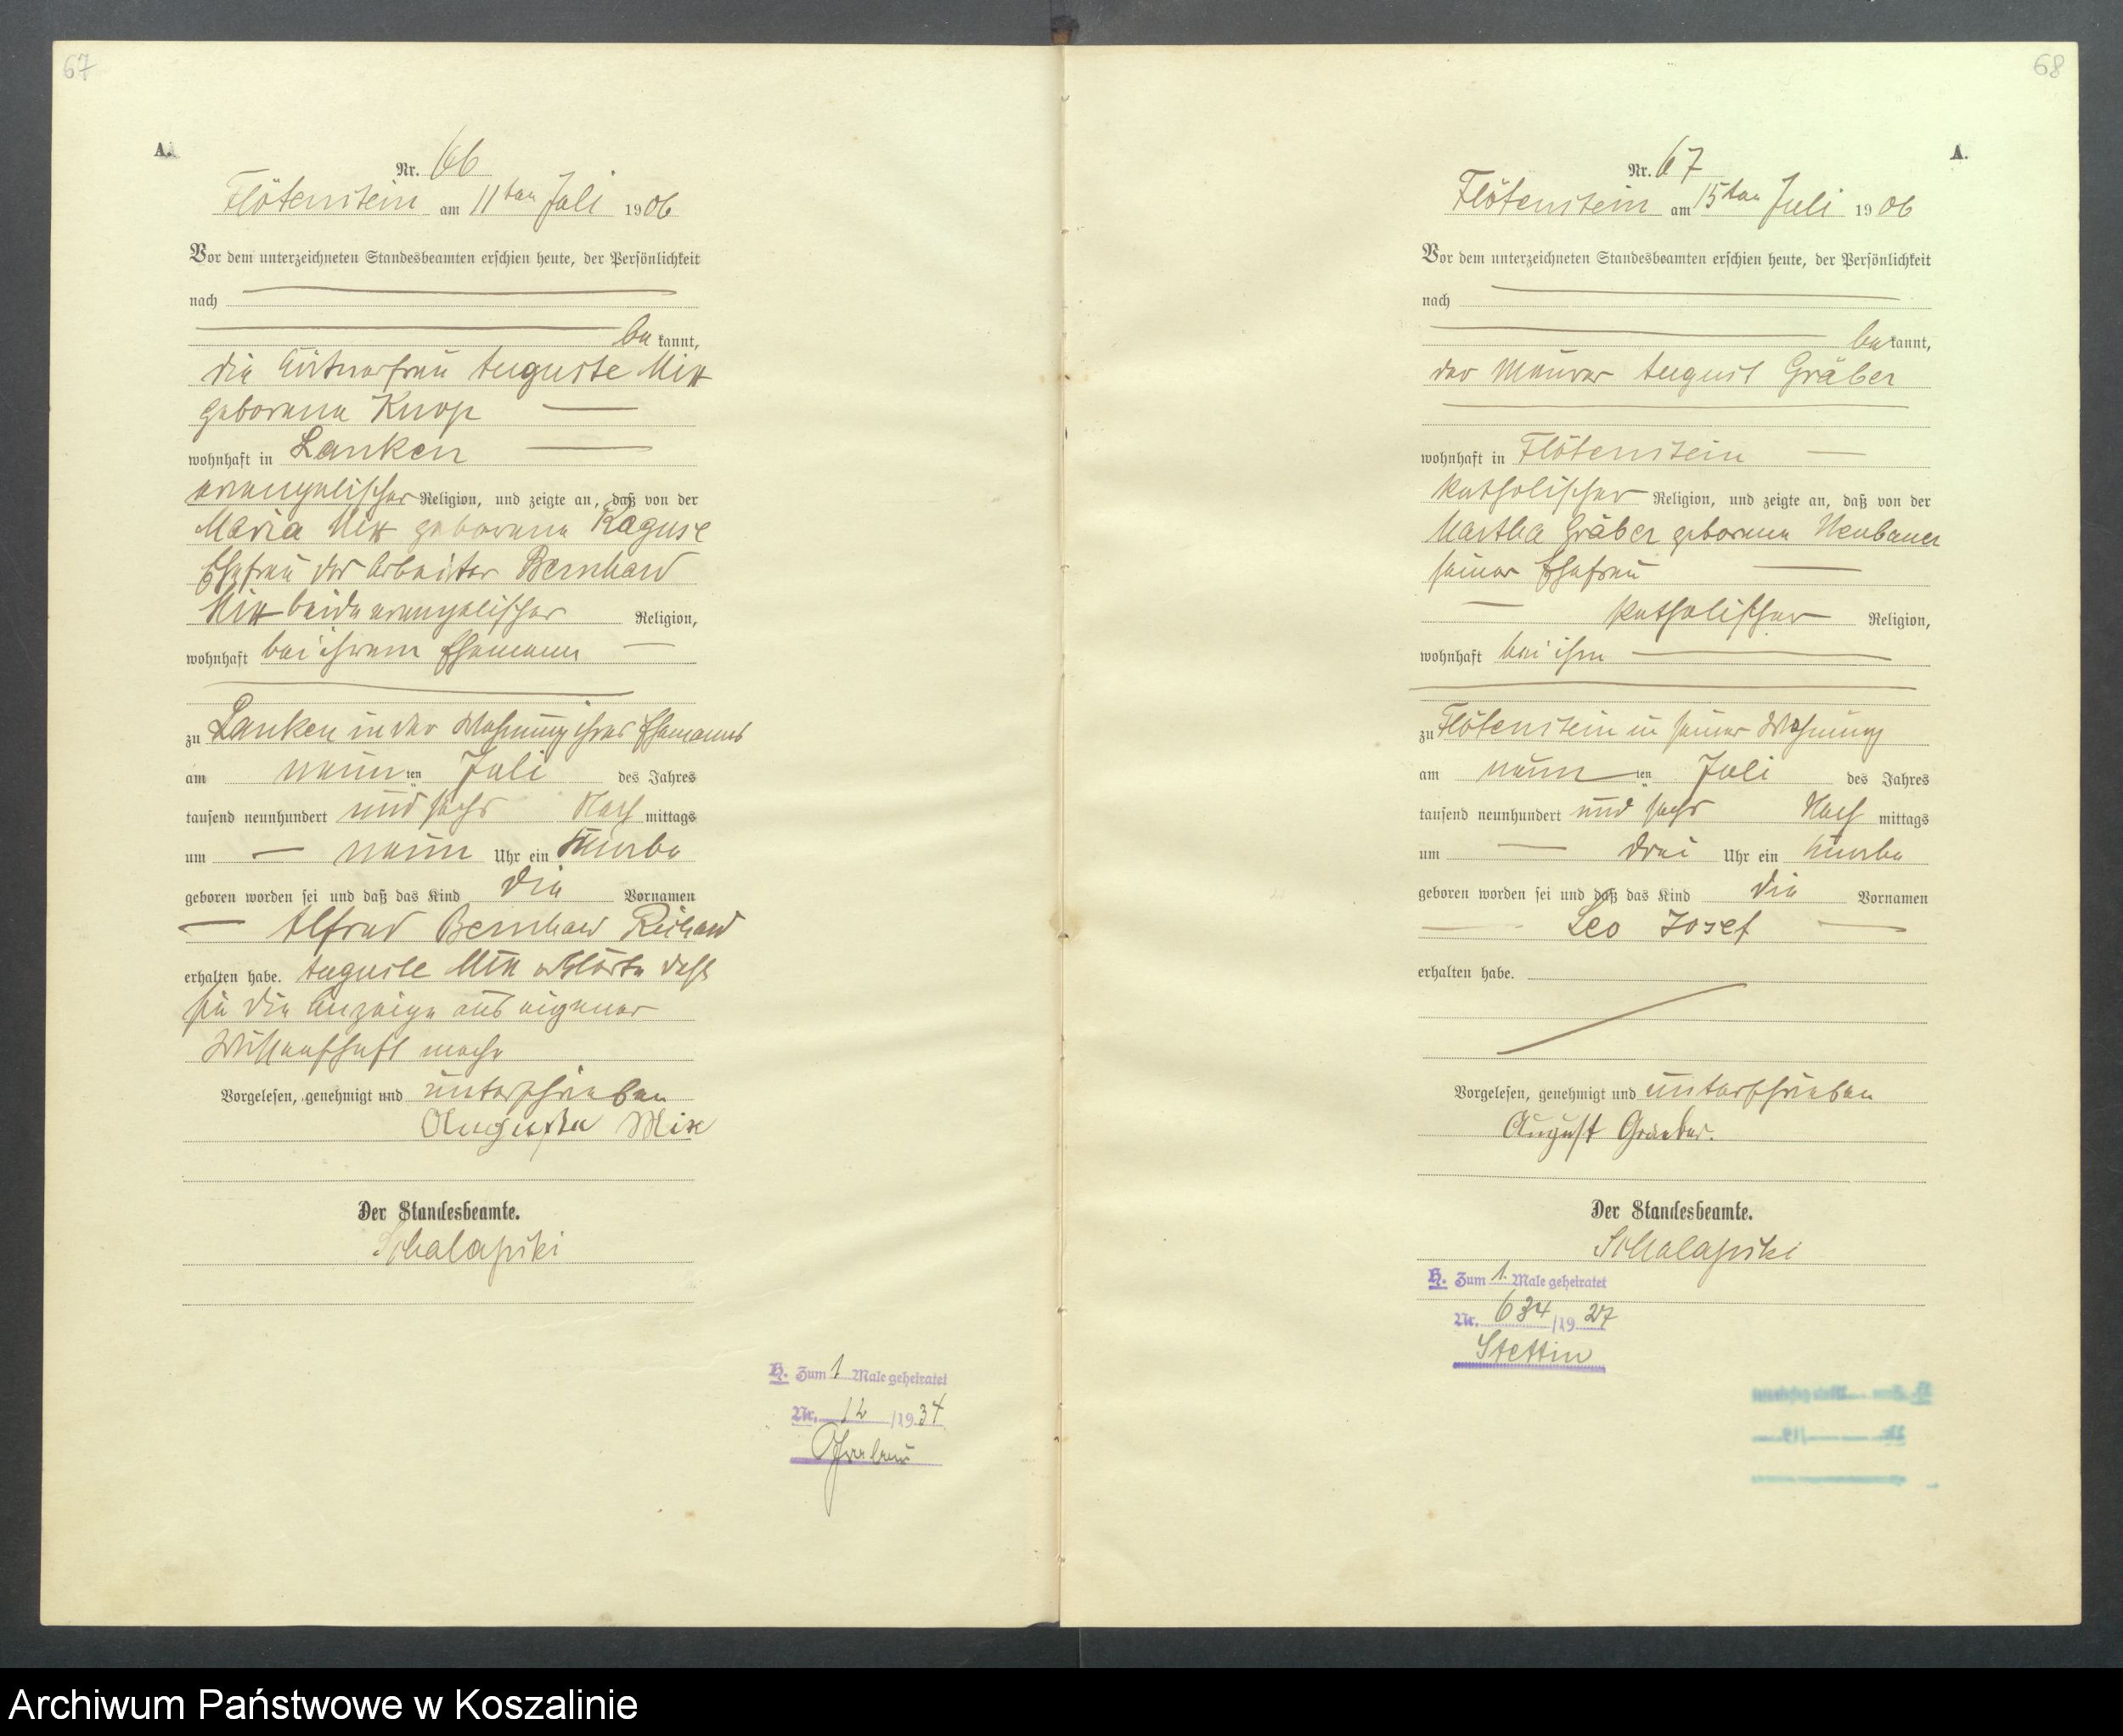 67
A.
Nr. 66
Flötenstein am 11ten Juli 1906
Vor dem unterzeichneten Standesbeamten erschien heute, der Persönlichkeit
nach
be kannt,
die Auguste Mix
geborene Knop
wohnhaft in Lanken
evangelischer Religion, und zeigte an, daß von der
Maria Mix geborene Raguse
Ehefrau des Arbeiter Bernhard
Mix beide evangelischer Religion,
wohnhaft bei ihrem Ehemann
zu Lanken in der Wohnung ihres Ehemannes
am neunten Juli des Jahres
tausend neunhundert und sechs Nach mittags
um neun Uhr ein Knabe
geboren worden sei und daß das Kind die Vornamen
Alfred Bernhard Richard
erhalten habe. Auguste Mix erklärte daß
sie die Anzeige aus eigener
Wissenschaft mache
Vorgelesen, genehmigt und unterschrieben
Auguste Mix
Der Standesbeamte.
Schalapski
H. Zum 1 Male geheiratet
Nr. 12 /1934
68
A.
Nr. 67
Flötenstein am 15ten Juli 1906
Vor dem unterzeichneten Standesbeamten erschien heute, der Persönlichkeit
nach
be kannt,
der Maurer August Gräber
wohnhaft in Flötenstein
katholischer Religion, und zeigte an, daß von der
Martha Gräber geborene Neubauer
seiner Ehefrau
katholischer Religion,
wohnhaft bei ihm
zu Flötenstein in seiner Wohnung
am neunten Juli des Jahres
tausend neunhundert und sechs Nach mittags
um drei Uhr ein Knabe
geboren worden sei und daß das Kind die Vornamen
Leo Josef
erhalten habe.
Vorgelesen, genehmigt und unterschrieben
August Graeber.
Der Standesbeamte.
Schalapski
H. Zum 1. Male geheiratet
Nr. 634 /1927
Stettin
Archiwum Państwowe w Koszalinie